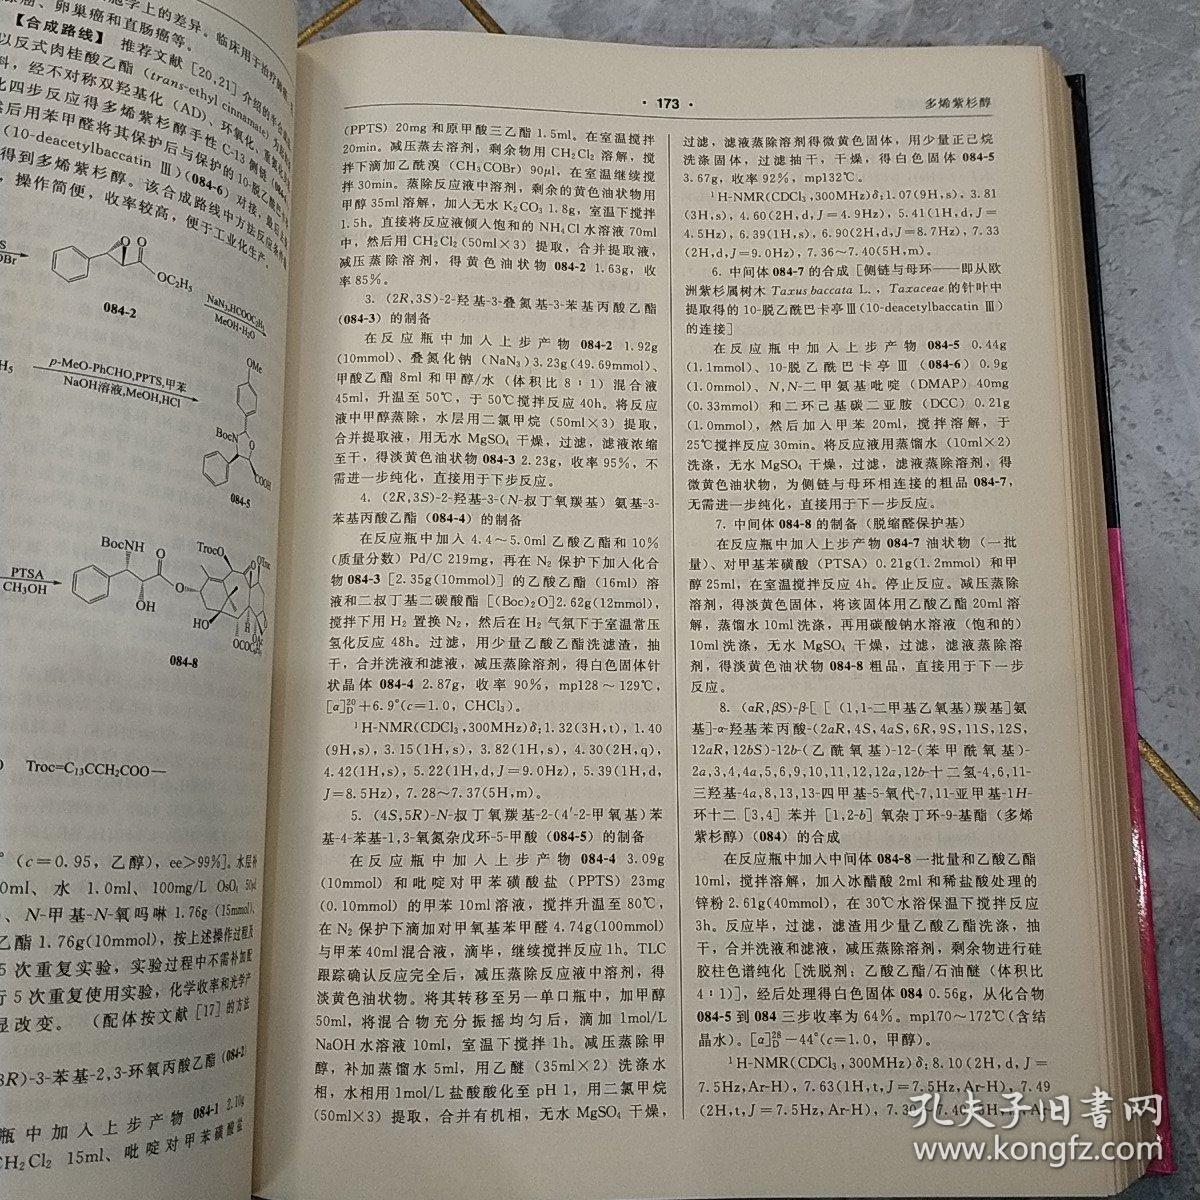 【合成路线】 推荐文献［20,21］介绍的
OC₂H₅
084-2
NaN₃,HCOOC₂H₅
MeOH·H₂O
p-MeO-PhCHO,PPTS,甲苯
NaOH溶液,MeOH,HCl
OMe
BocN
COOH
084-5
PTSA
CH₃OH
BocNH
TrocO
OH
HO
084-8
Troc=C₁₃CCH₂COO—
(c=0.95，乙醇)，ee>99%］。水层补
0ml、水 1.0ml、100mg/L OsO₄ 50μl
、N-甲基-N-氧吗啉 1.76g (15mmol)、
乙酯 1.76g(10mmol)，按上述操作过程及
5 次重复实验，实验过程中不需补加配
行 5 次重复使用实验，化学收率和光学产
显改变。 （配体按文献［17］的方法
3R)-3-苯基-2,3-环氧丙酸乙酯 (084-2)
瓶中加入上步产物 084-1 2.10g
CH₂Cl₂ 15ml、吡啶对甲苯磺酸盐
· 173 ·
多烯紫杉醇
(PPTS) 20mg 和原甲酸三乙酯 1.5ml。在室温搅拌
20min。减压蒸去溶剂，剩余物用 CH₂Cl₂ 溶解，搅
拌下滴加乙酰溴 (CH₃COBr) 90μl，在室温继续搅
拌 30min。蒸除反应液中溶剂，剩余的黄色油状物用
甲醇 35ml 溶解，加入无水 K₂CO₃ 1.8g，室温下搅拌
1.5h。直接将反应液倾入饱和的 NH₄Cl 水溶液 70ml
中，然后用 CH₂Cl₂ (50ml×3) 提取，合并提取液，
减压蒸除溶剂，得黄色油状物 084-2 1.63g，收
率 85%。
3. (2R,3S)-2-羟基-3-叠氮基-3-苯基丙酸乙酯
(084-3) 的制备
在反应瓶中加入上步产物 084-2 1.92g
(10mmol)、叠氮化钠 (NaN₃) 3.23g(49.69mmol)、
甲酸乙酯 8ml 和甲醇/水（体积比 8∶1）混合液
45ml，升温至 50℃，于 50℃搅拌反应 40h。将反应
液中甲醇蒸除，水层用二氯甲烷 (50ml×3) 提取，
合并提取液，用无水 MgSO₄ 干燥，过滤，滤液浓缩
至干，得淡黄色油状物 084-3 2.23g，收率 95%，不
需进一步纯化，直接用于下步反应。
4. (2R,3S)-2-羟基-3-(N-叔丁氧羰基) 氨基-3-
苯基丙酸乙酯 (084-4) 的制备
在反应瓶中加入 4.4～5.0ml 乙酸乙酯和 10%
(质量分数) Pd/C 219mg，再在 N₂ 保护下加入化合
物 084-3［2.35g(10mmol)］的乙酸乙酯 (16ml) 溶
液和二叔丁基二碳酸酯［(Boc)₂O］2.62g(12mmol)，
搅拌下用 H₂ 置换 N₂，然后在 H₂ 气氛下于室温常压
氢化反应 48h。过滤，用少量乙酸乙酯洗滤渣，抽
干，合并洗液和滤液，减压蒸除溶剂，得白色固体针
状晶体 084-4 2.87g，收率 90%，mp128～129℃，
[α]²⁰D+6.9°(c=1.0，CHCl₃)。
¹H-NMR(CDCl₃,300MHz)δ:1.32(3H,t)，1.40
(9H,s)，3.15(1H,s)，3.82(1H,s)，4.30(2H,q)，
4.42(1H,s)，5.22(1H,d,J=9.0Hz)，5.39(1H,d,
J=8.5Hz)，7.28～7.37(5H,m)。
5. (4S,5R)-N-叔丁氧羰基-2-(4′-2-甲氧基) 苯
基-4-苯基-1,3-氧氮杂戊环-5-甲酸 (084-5) 的制备
在反应瓶中加入上步产物 084-4 3.09g
(10mmol) 和吡啶对甲苯磺酸盐 (PPTS) 23mg
(0.10mmol) 的甲苯 10ml 溶液，搅拌升温至 80℃，
在 N₂ 保护下滴加对甲氧基苯甲醛 4.74g(100mmol)
与甲苯 40ml 混合液，滴毕，继续搅拌反应 1h。TLC
跟踪确认反应完全后，减压蒸除反应液中溶剂，得
淡黄色油状物。将其转移至另一单口瓶中，加甲醇
50ml，将混合物充分振摇均匀后，滴加 1mol/L
NaOH 水溶液 10ml，室温下搅拌 1h。减压蒸除甲
醇，补加蒸馏水 5ml，用乙醚 (35ml×2) 洗涤水
相，水相用 1mol/L 盐酸酸化至 pH 1，用二氯甲烷
(50ml×3) 提取，合并有机相，无水 MgSO₄ 干燥，
过滤，滤液蒸除溶剂得微黄色固体，用少量正己烷
洗涤固体，过滤抽干，干燥，得白色固体 084-5
3.67g，收率 92%，mp132℃。
¹H-NMR(CDCl₃,300MHz)δ:1.07(9H,s)，3.81
(3H,s)，4.60(2H,d,J=4.9Hz)，5.41(1H,d,J=
4.5Hz)，6.39(1H,s)，6.90(2H,d,J=8.7Hz)，7.33
(2H,d,J=9.0Hz)，7.36～7.40(5H,m)。
6. 中间体 084-7 的合成［侧链与母环——即从欧
洲紫杉属树木 Taxus baccata L.，Taxaceae 的针叶中
提取得的 10-脱乙酰巴卡亭Ⅲ(10-deacetylbaccatin Ⅲ)
的连接］
在反应瓶中加入上步产物 084-5 0.44g
(1.1mmol)、10-脱乙酰巴卡亭Ⅲ (084-6) 0.9g
(1.0mmol)、N,N-二甲氨基吡啶 (DMAP) 40mg
(0.33mmol) 和二环己基碳二亚胺 (DCC) 0.21g
(1.0mmol)，然后加入甲苯 20ml，搅拌溶解，于
25℃搅拌反应 30min。将反应液用蒸馏水 (10ml×2)
洗涤，无水 MgSO₄ 干燥，过滤，滤液蒸除溶剂，得
微黄色油状物，为侧链与母环相连接的粗品 084-7，
无需进一步纯化，直接用于下一步反应。
7. 中间体 084-8 的制备（脱缩醛保护基）
在反应瓶中加入上步产物 084-7 油状物（一批
量）、对甲基苯磺酸 (PTSA) 0.21g(1.2mmol) 和甲
醇 25ml，在室温搅拌反应 4h。停止反应。减压蒸除
溶剂，得淡黄色固体，将该固体用乙酸乙酯 20ml 溶
解，蒸馏水 10ml 洗涤，再用碳酸钠水溶液（饱和的）
10ml 洗涤，无水 MgSO₄ 干燥，过滤，滤液蒸除溶
剂，得淡黄色油状物 084-8 粗品，直接用于下一步
反应。
8. (αR,βS)-β-［［(1,1-二甲基乙氧基)羰基］氨
基］-α-羟基苯丙酸-(2aR,4S,4aS,6R,9S,11S,12S,
12aR,12bS)-12b-(乙酰氧基)-12-(苯甲酰氧基)-
2a,3,4,4a,5,6,9,10,11,12,12a,12b-十二氢-4,6,11-
三羟基-4a,8,13,13-四甲基-5-氧代-7,11-亚甲基-1H-
环十二［3,4］苯并［1,2-b］氧杂丁环-9-基酯（多烯
紫杉醇）(084) 的合成
在反应瓶中加入中间体 084-8 一批量和乙酸乙酯
10ml，搅拌溶解，加入冰醋酸 2ml 和稀盐酸处理的
锌粉 2.61g(40mmol)，在 30℃水浴保温下搅拌反应
3h。反应毕，过滤，滤渣用少量乙酸乙酯洗涤，抽
干，合并洗液和滤液，减压蒸除溶剂，剩余物进行硅
胶柱色谱纯化［洗脱剂：乙酸乙酯/石油醚（体积比
4∶1）］，经后处理得白色固体 084 0.56g，从化合物
084-5 到 084 三步收率为 64%。mp170～172℃(含结
晶水)。[α]²⁸D−44°(c=1.0，甲醇)。
¹H-NMR(CDCl₃,300MHz)δ:8.10(2H,d,J=
7.5Hz,Ar-H)，7.63(1H,t,J=7.5Hz,Ar-H)，7.49
(2H,t,J=7.5Hz,Ar-H)，
孔夫子旧书网
www.kongfz.com